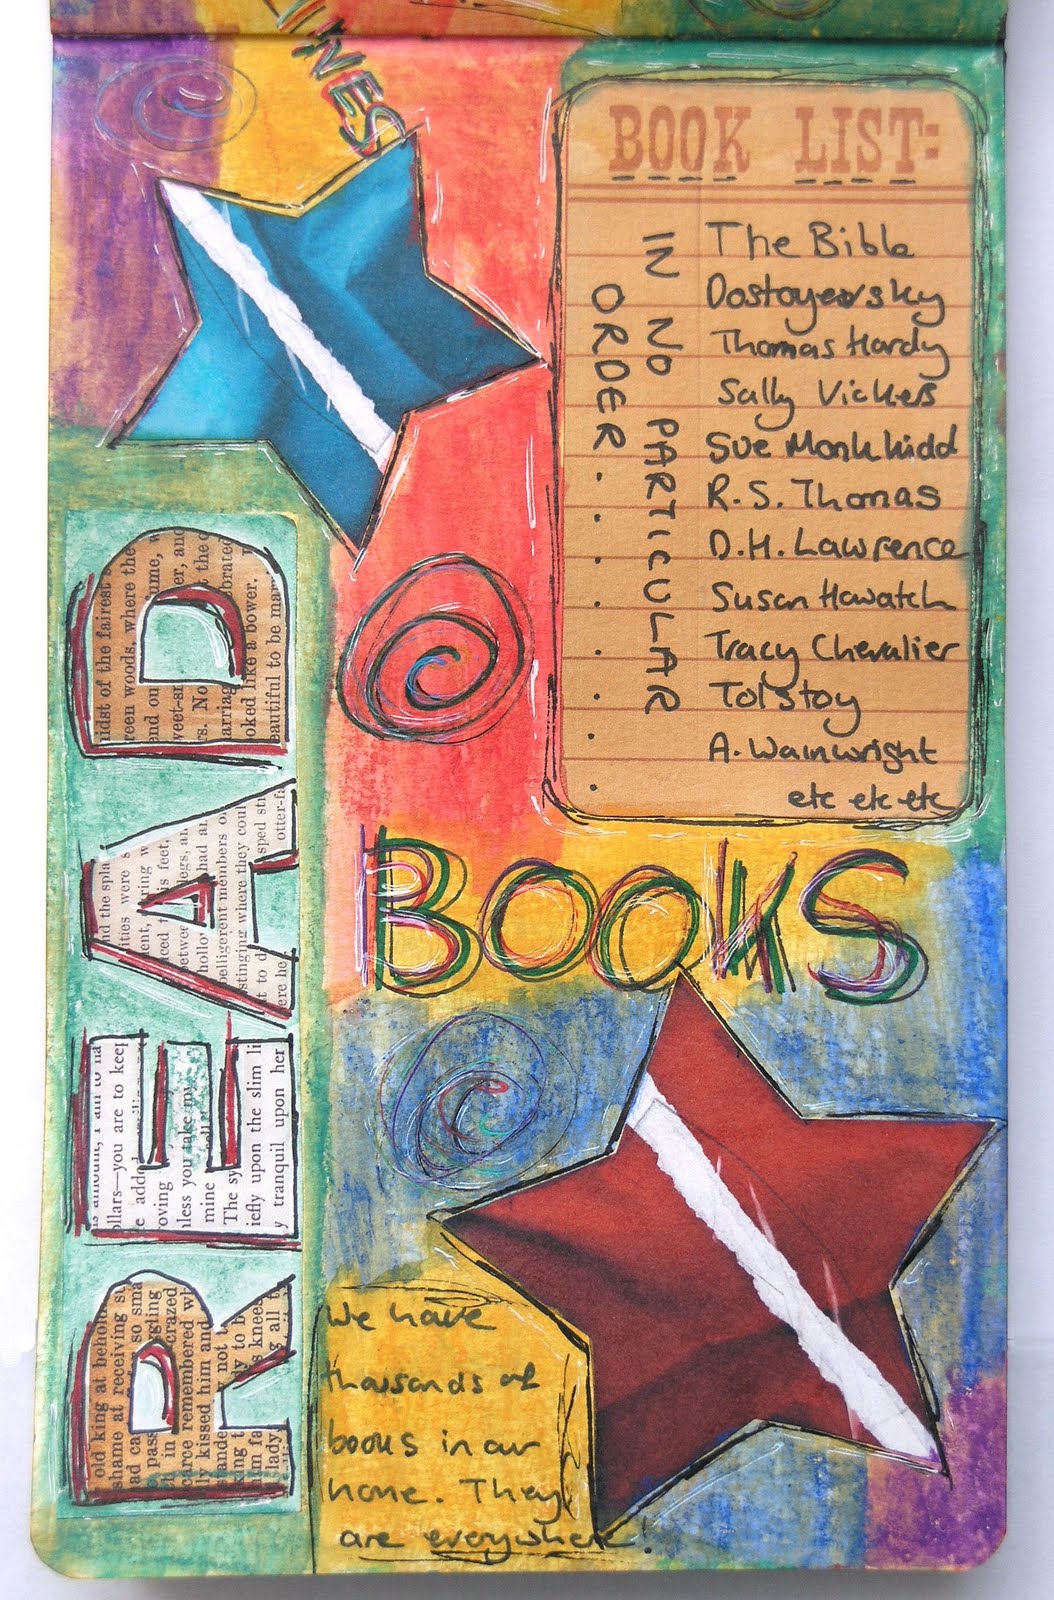 LINES
BOOK LIST:
IN NO PARTICULAR
ORDER.
The Bible
Dostoyevsky
Thomas Hardy
Sally Vickers
Sue Monk Kidd
R.S. Thomas
D.H. Lawrence
Susan Howatch
Tracy Chevalier
Tolstoy
A. Wainwright
etc etc etc
READ
BOOKS
We have
thousands of
books in our
home. They
are everywhere!